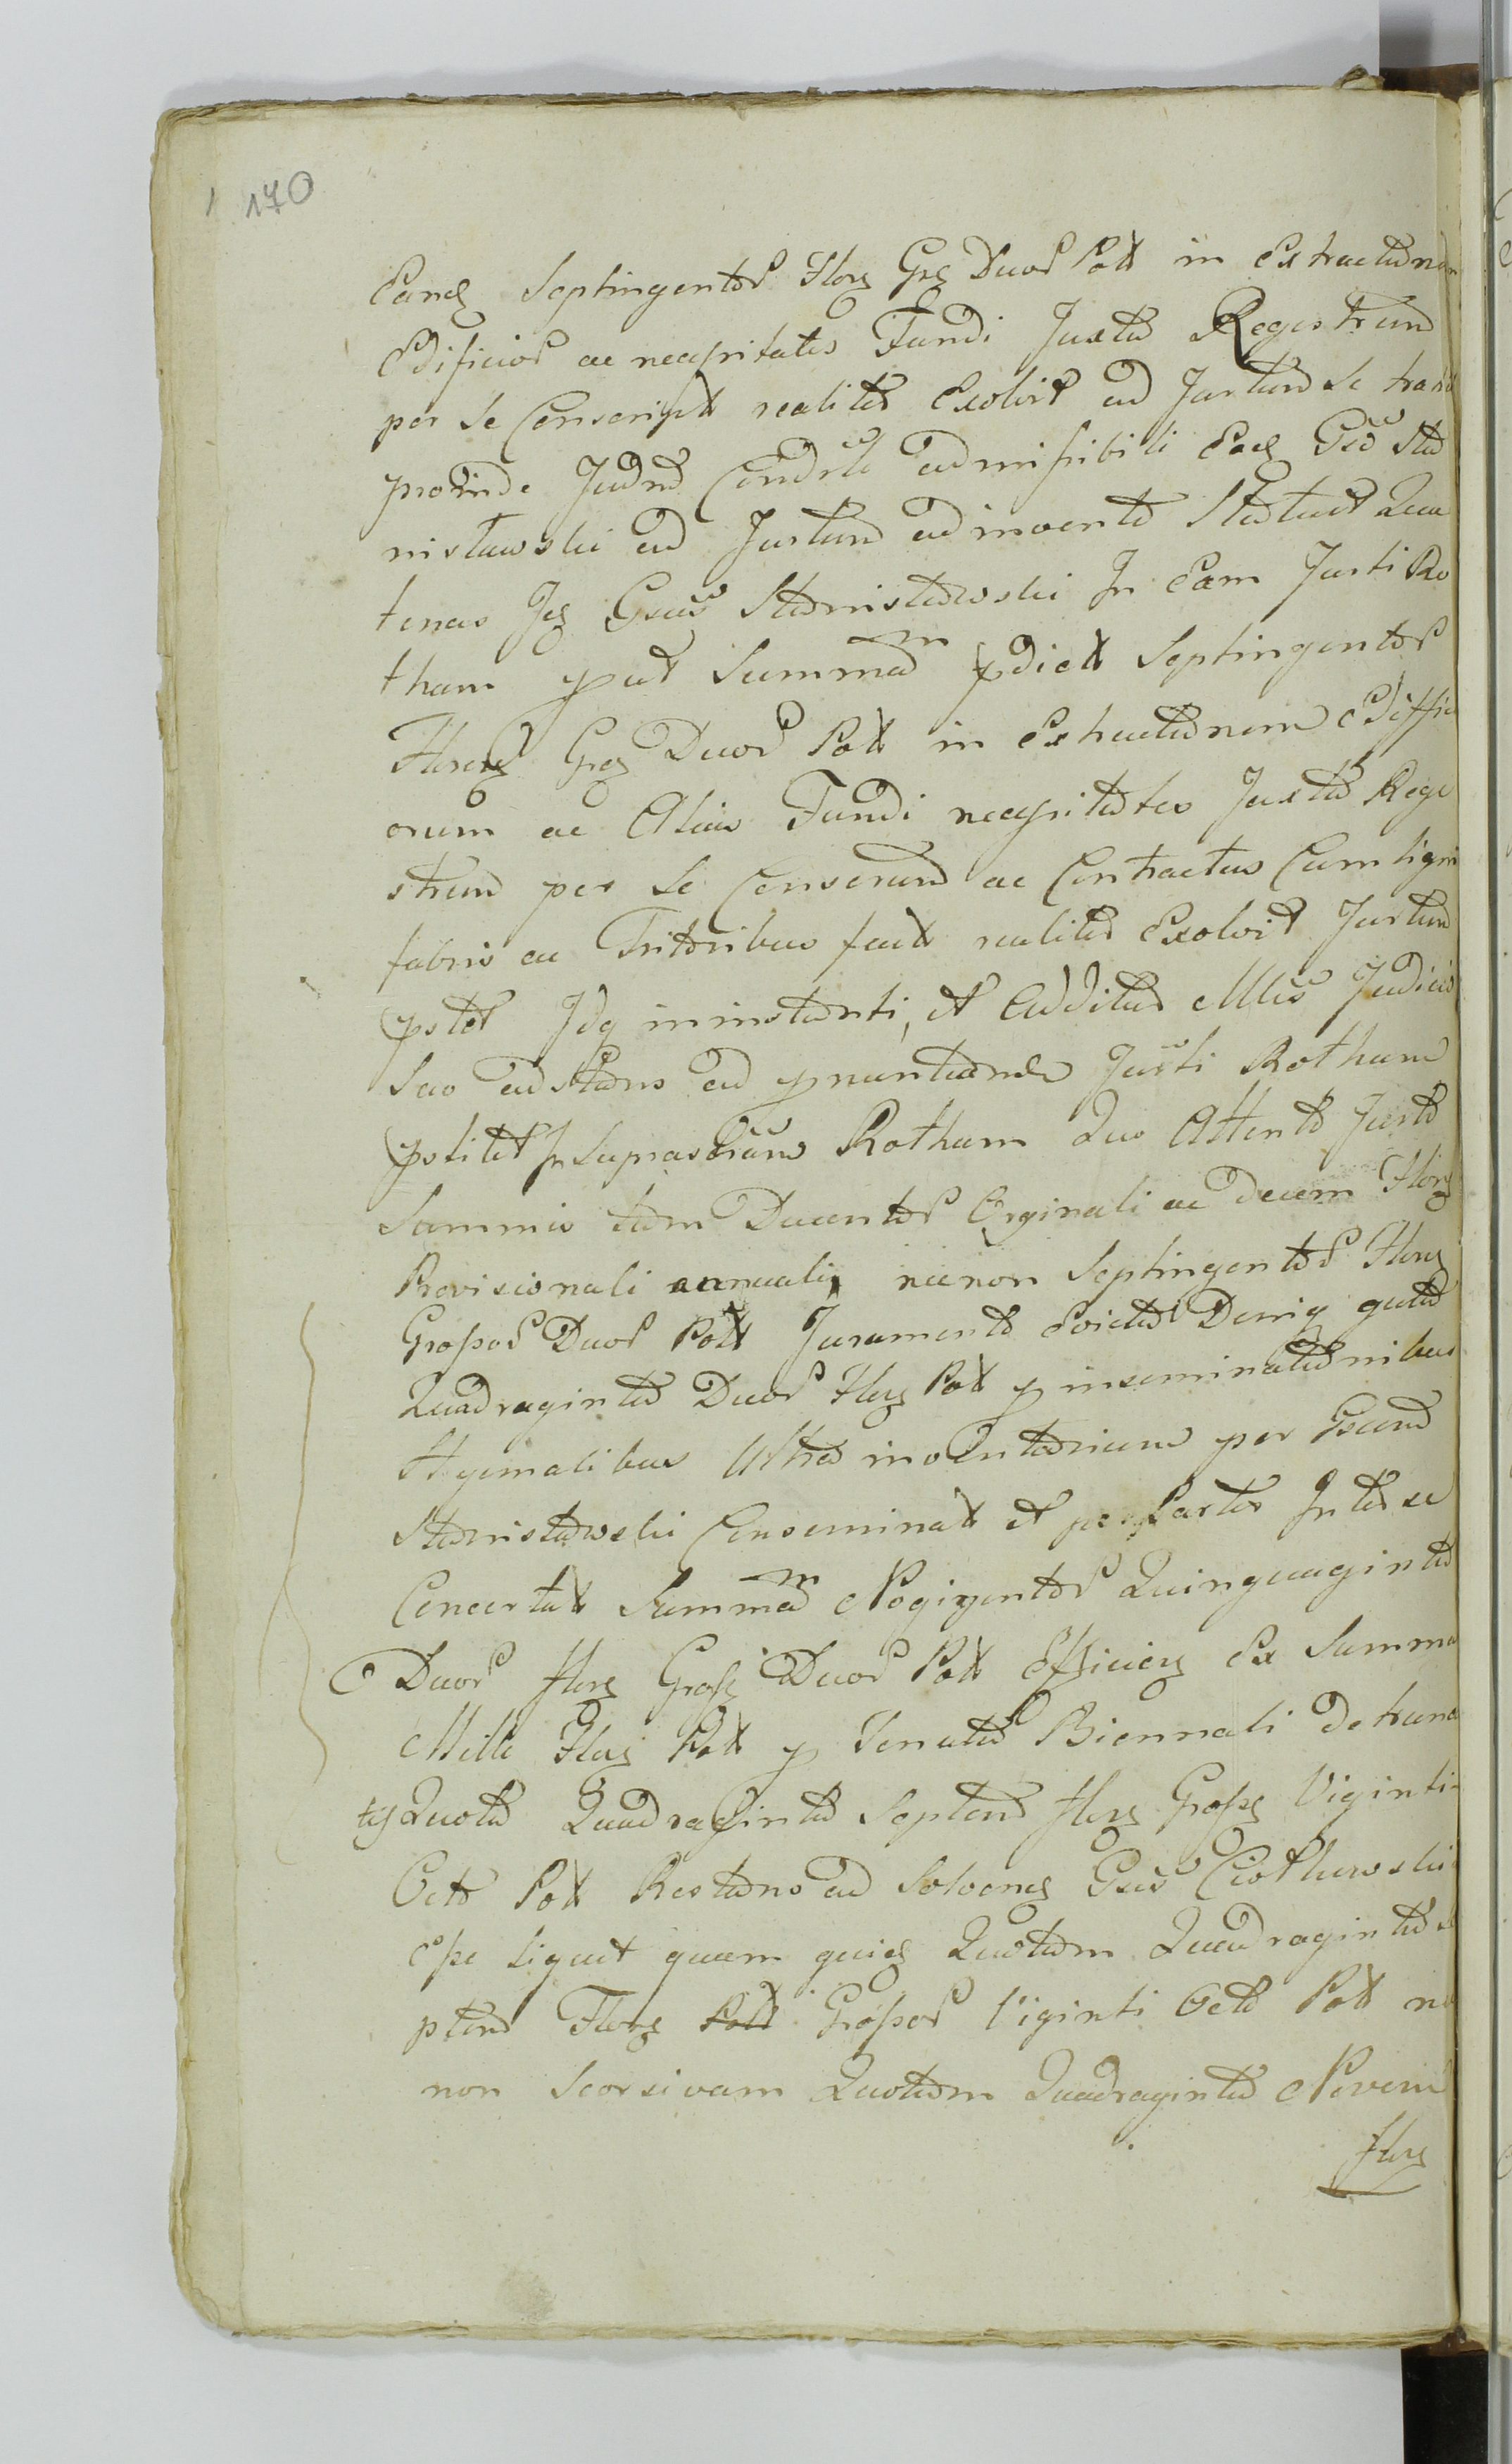 170
Eandē Septingentor Flor Gr Duor Poll in Extractionem
Edificior ac necessitates Fundi Juxta Regestrum
per Se Conscript realiter Exolvit ad Jurtum Se
proinde Judm admissibili Eoq Gsō Sta
nisławski ad Jurtum adinvento Statuit Qua
tenus Gsus Stanisławski In Eam Jurti Ro
tham put Summam pdict Septingentor
Floreq Groš Duor Poll in Extractionem Ediffici
orum ac Alias Fundi necessitates Juxta Rege
strum per Se Conserum ac Contractus Cum ligni
fabris ac Tritoribus fact realiter Exolvit Jurtum
pstet Idq in instanti, et Additus Mtis Judicio
Suo adstans ad pnuntiand Jurti Rotham
pstitit In Suprascrum Rotham Quo Attento Juxto
Summis tam Ducentor Orginali ac decem Flor
Provisionali annuali necnon Septingentor Flor
Grossor Duor Poll Juramento Evictis Deniq
Quadraginta Duor Flor Poll p inseminationibus
Hyemalibus Ultra inventarium per Gsum
Stanisławski Conseminat et per Partes Inter se
Concertat Summam Nogigentor Quinquaginta
Duor Flor Gross Duor Poll Efficien Ex Summa
Mille Flor Poll p Tenuta Biennali detrunca
tis Quota Quadraginta Septem Flor Gross Viginti
Octo Poll Restans ad Solvend Gsis
esse liquet quam quid Quotam Quadraginta Se
ptem Flor Poll Grossor Viginti Octo Poll nec
non Seorsivam Quotam Quadraginta Novem
Flor